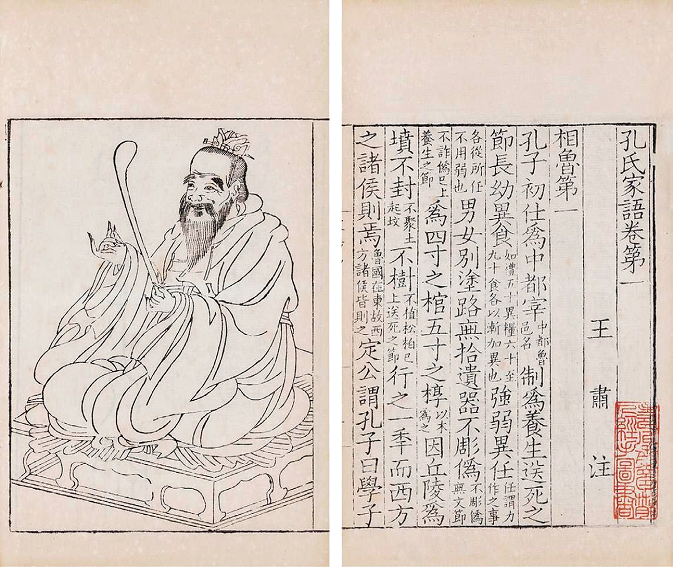 孔氏家語卷第一
王肅注
相魯第一
孔子初仕爲中都宰中都魯邑名制爲養生送死之
節長幼異食如禮五十異糧六十至九十食各以漸加異也強弱異任任謂力作之事
各從所任不用弱也男女別塗路無拾遺器不彫僞不彫僞無文節
不詐僞已上養生之節爲四寸之棺五寸之椁以木爲之因丘陵爲
墳不封不聚土起坟不樹不植松柏已上送死之節行之一秊而西方
之諸侯則焉魯國在東故西方諸侯皆則之定公謂孔子曰學子